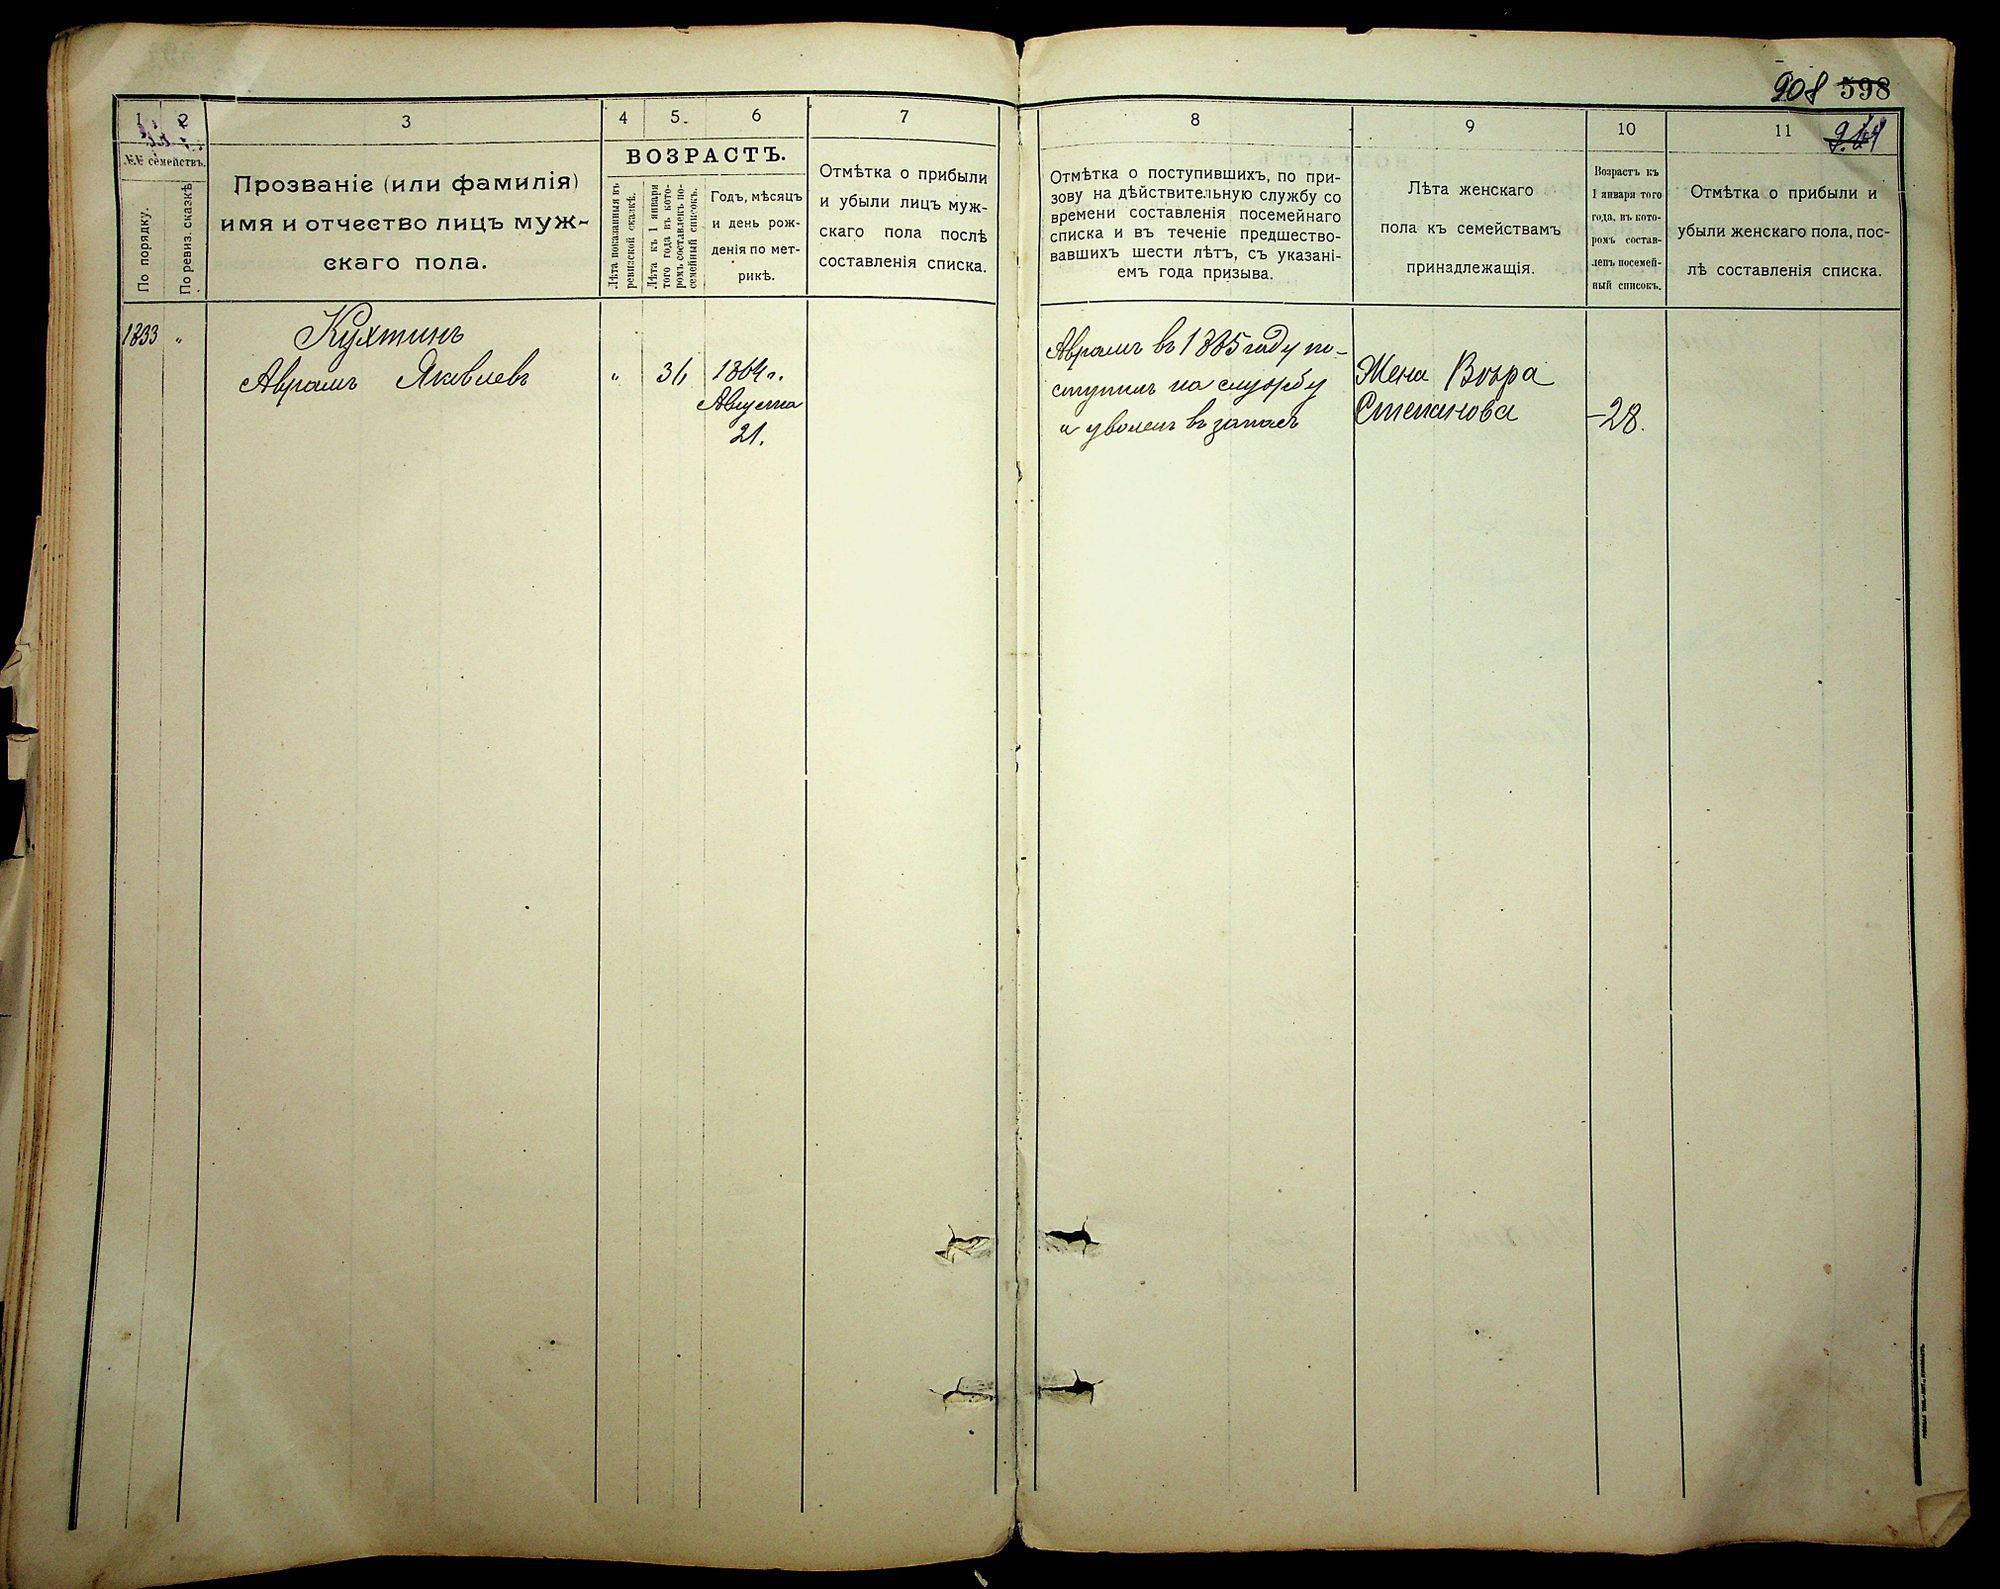 908 598
1 2 3 4 5. 6 7
№№ семействъ.
По порядку.
По ревиз. сказкѣ
Прозваніе (или фамилія)
имя и отчество лицъ муж-
скаго пола.
ВОЗРАСТЪ.
Лѣта показанныя въ
ревизской сказкѣ.
Лѣта къ 1 января
того года въ кото-
ромъ составленъ по-
семейный списокъ.
Годъ, мѣсяцъ
и день рож-
денія по мет-
рикѣ.
Отмѣтка о прибыли
и убыли лицъ муж-
скаго пола послѣ
составленія списка.
1833 „
Кухтинъ
Аврамъ Яковлевъ
„ 36 1864 г.
Августа
21.
8 9 10 11
Отмѣтка о поступившихъ, по при-
зову на дѣйствительную службу со
времени составленія посемейнаго
списка и въ теченіе предшество-
вавшихъ шести лѣтъ, съ указані-
емъ года призыва.
Лѣта женскаго
пола къ семействамъ
принадлежащія.
Возрастъ къ
1 января того
года, въ кото-
ромъ состав-
ленъ посемей-
ный списокъ.
Отмѣтка о прибыли и
убыли женскаго пола, пос-
лѣ составленія списка.
Аврамъ въ 1885 году по-
ступилъ на службу
и уволенъ въ запасъ
Жена Вѣра
Степанова
-28.